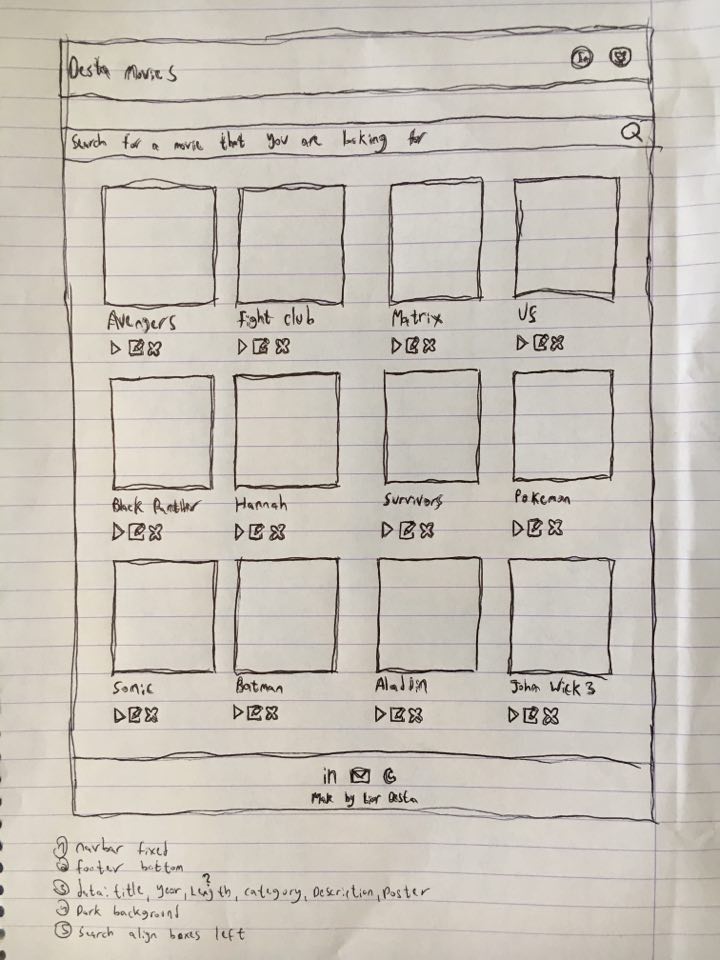 Desta Movies
Search for a movie that you are looking for
Avengers Fight club Matrix US
Black Panther Hannah Survivors Pokemon
Sonic Batman Aladdin John Wick 3
in
Made by Lior Desta
① navbar fixed
② footer bottom
?
③ data: title, year, Length, category, Description, Poster
④ Dark background
⑤ Search align boxes left